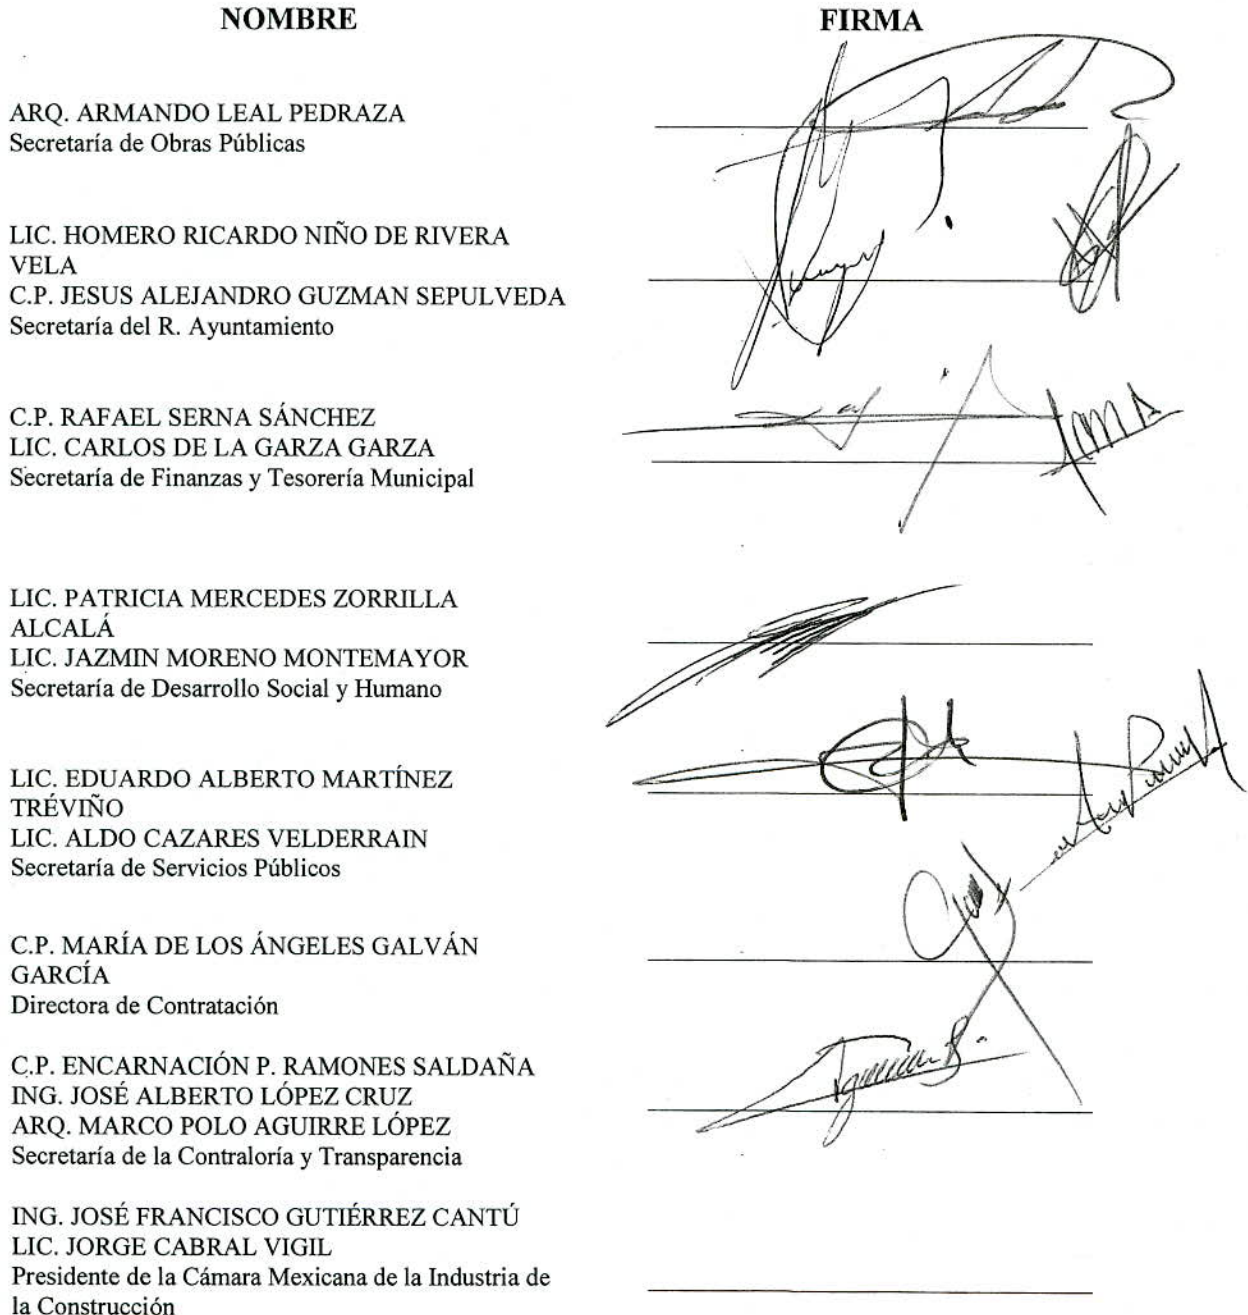 NOMBRE FIRMA
ARQ. ARMANDO LEAL PEDRAZA
Secretaría de Obras Públicas
LIC. HOMERO RICARDO NIÑO DE RIVERA
VELA
C.P. JESUS ALEJANDRO GUZMAN SEPULVEDA
Secretaría del R. Ayuntamiento
C.P. RAFAEL SERNA SÁNCHEZ
LIC. CARLOS DE LA GARZA GARZA
Secretaría de Finanzas y Tesorería Municipal
LIC. PATRICIA MERCEDES ZORRILLA
ALCALÁ
LIC. JAZMIN MORENO MONTEMAYOR
Secretaría de Desarrollo Social y Humano
LIC. EDUARDO ALBERTO MARTÍNEZ
TRÉVIÑO
LIC. ALDO CAZARES VELDERRAIN
Secretaría de Servicios Públicos
C.P. MARÍA DE LOS ÁNGELES GALVÁN
GARCÍA
Directora de Contratación
C.P. ENCARNACIÓN P. RAMONES SALDAÑA
ING. JOSÉ ALBERTO LÓPEZ CRUZ
ARQ. MARCO POLO AGUIRRE LÓPEZ
Secretaría de la Contraloría y Transparencia
ING. JOSÉ FRANCISCO GUTIÉRREZ CANTÚ
LIC. JORGE CABRAL VIGIL
Presidente de la Cámara Mexicana de la Industria de
la Construcción